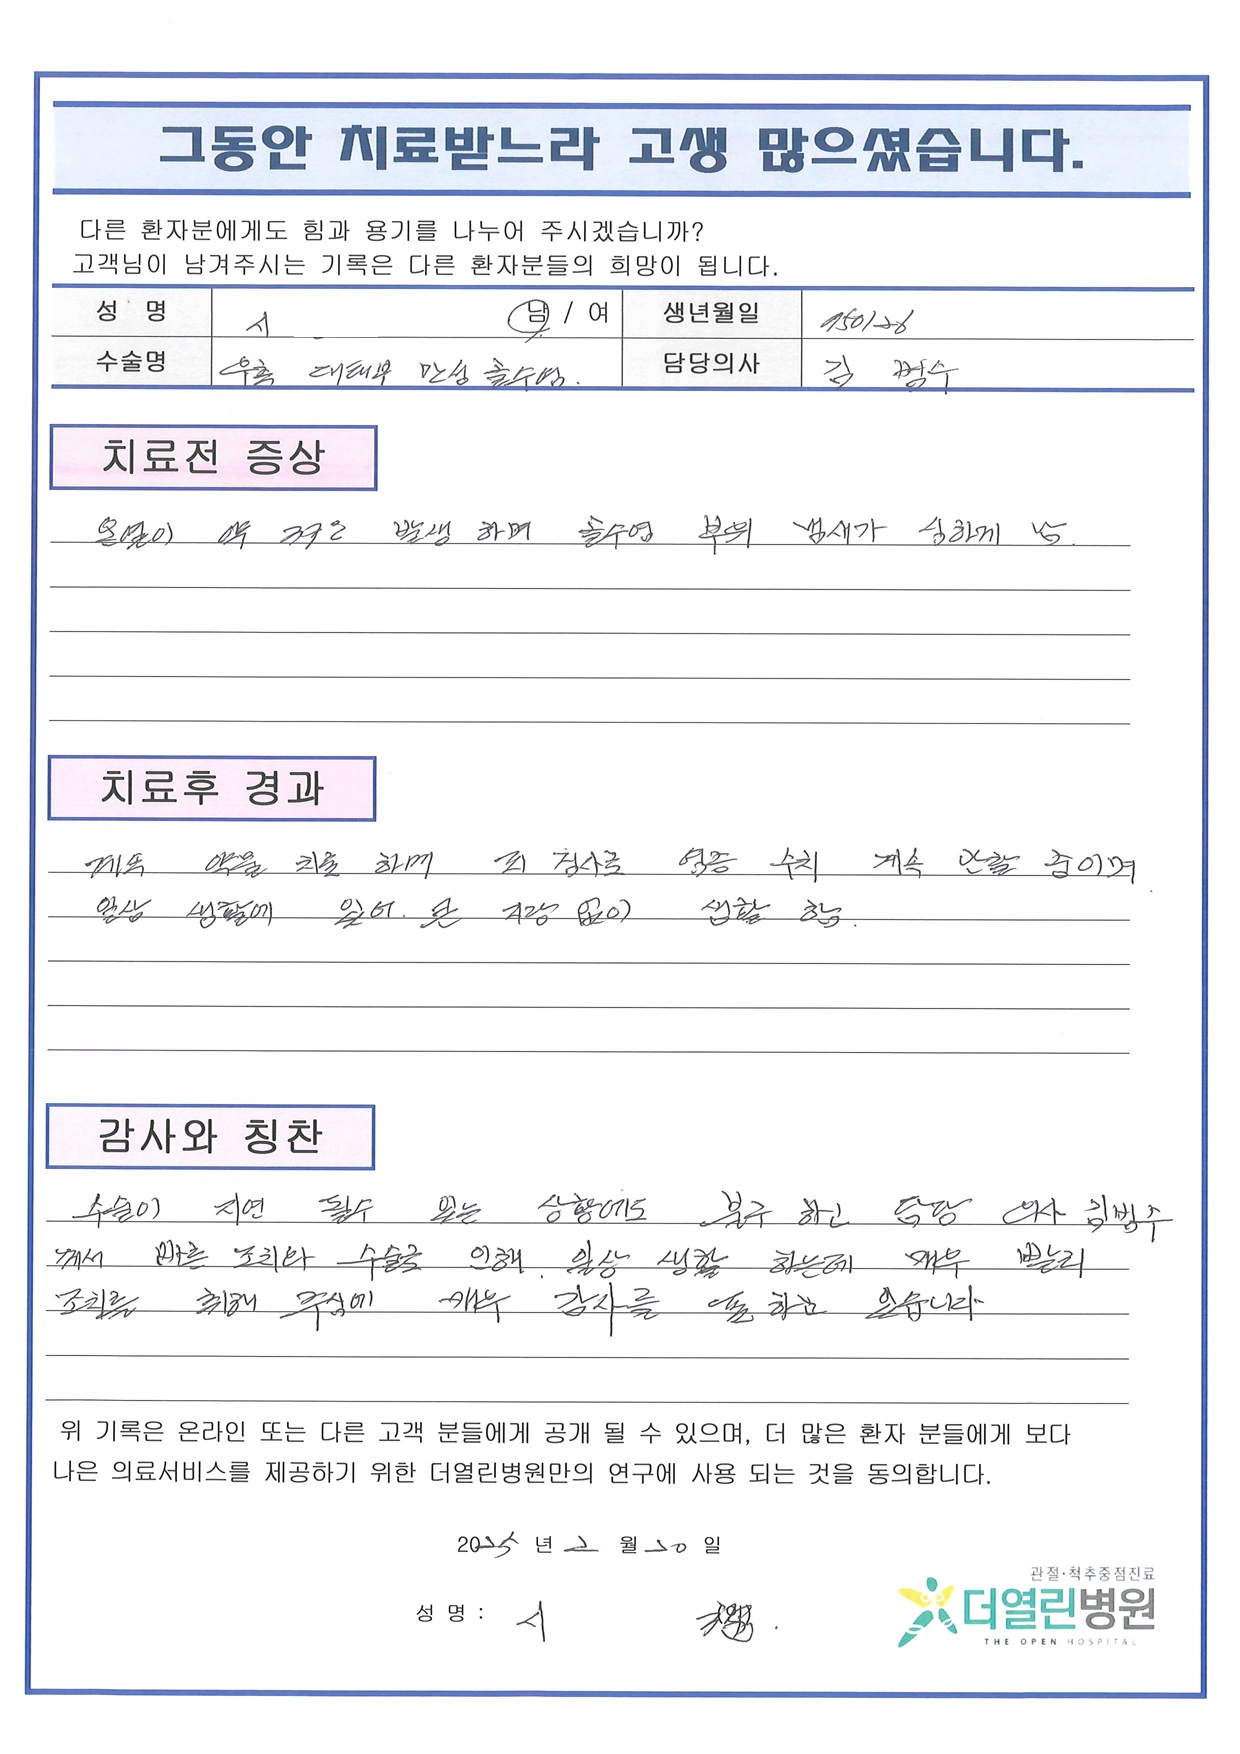 그동안 치료받느라 고생 많으셨습니다.
다른 환자분에게도 힘과 용기를 나누어 주시겠습니까?
고객님이 남겨주시는 기록은 다른 환자분들의 희망이 됩니다.
성 명 시 남 / 여 생년월일 950126
수술명 우측 대퇴부 만성 골수염. 담당의사 김 범수
치료전 증상
발생 하며 골수염 부위 냄새가 심하게 남.
치료후 경과
계속 약물 치료 하며 피 검사로 염증 수치 계속 관찰 중이며
일상 생활에 있어 큰 지장 없이 생활 함.
감사와 칭찬
수술이 지연 될수 있는 상황에도 불구 하고 담당 의사 김범수
께서 빠른 조치와 수술로 인해 일상 생활 하는데 매우 빨리
조치를 취해 주심에 매우 감사를 표 하고 있습니다
위 기록은 온라인 또는 다른 고객 분들에게 공개 될 수 있으며, 더 많은 환자 분들에게 보다
나은 의료서비스를 제공하기 위한 더열린병원만의 연구에 사용 되는 것을 동의합니다.
2025 년 2 월 20 일
성 명 : 시
관절·척추중점진료
더열린병원
THE OPEN HOSPITAL